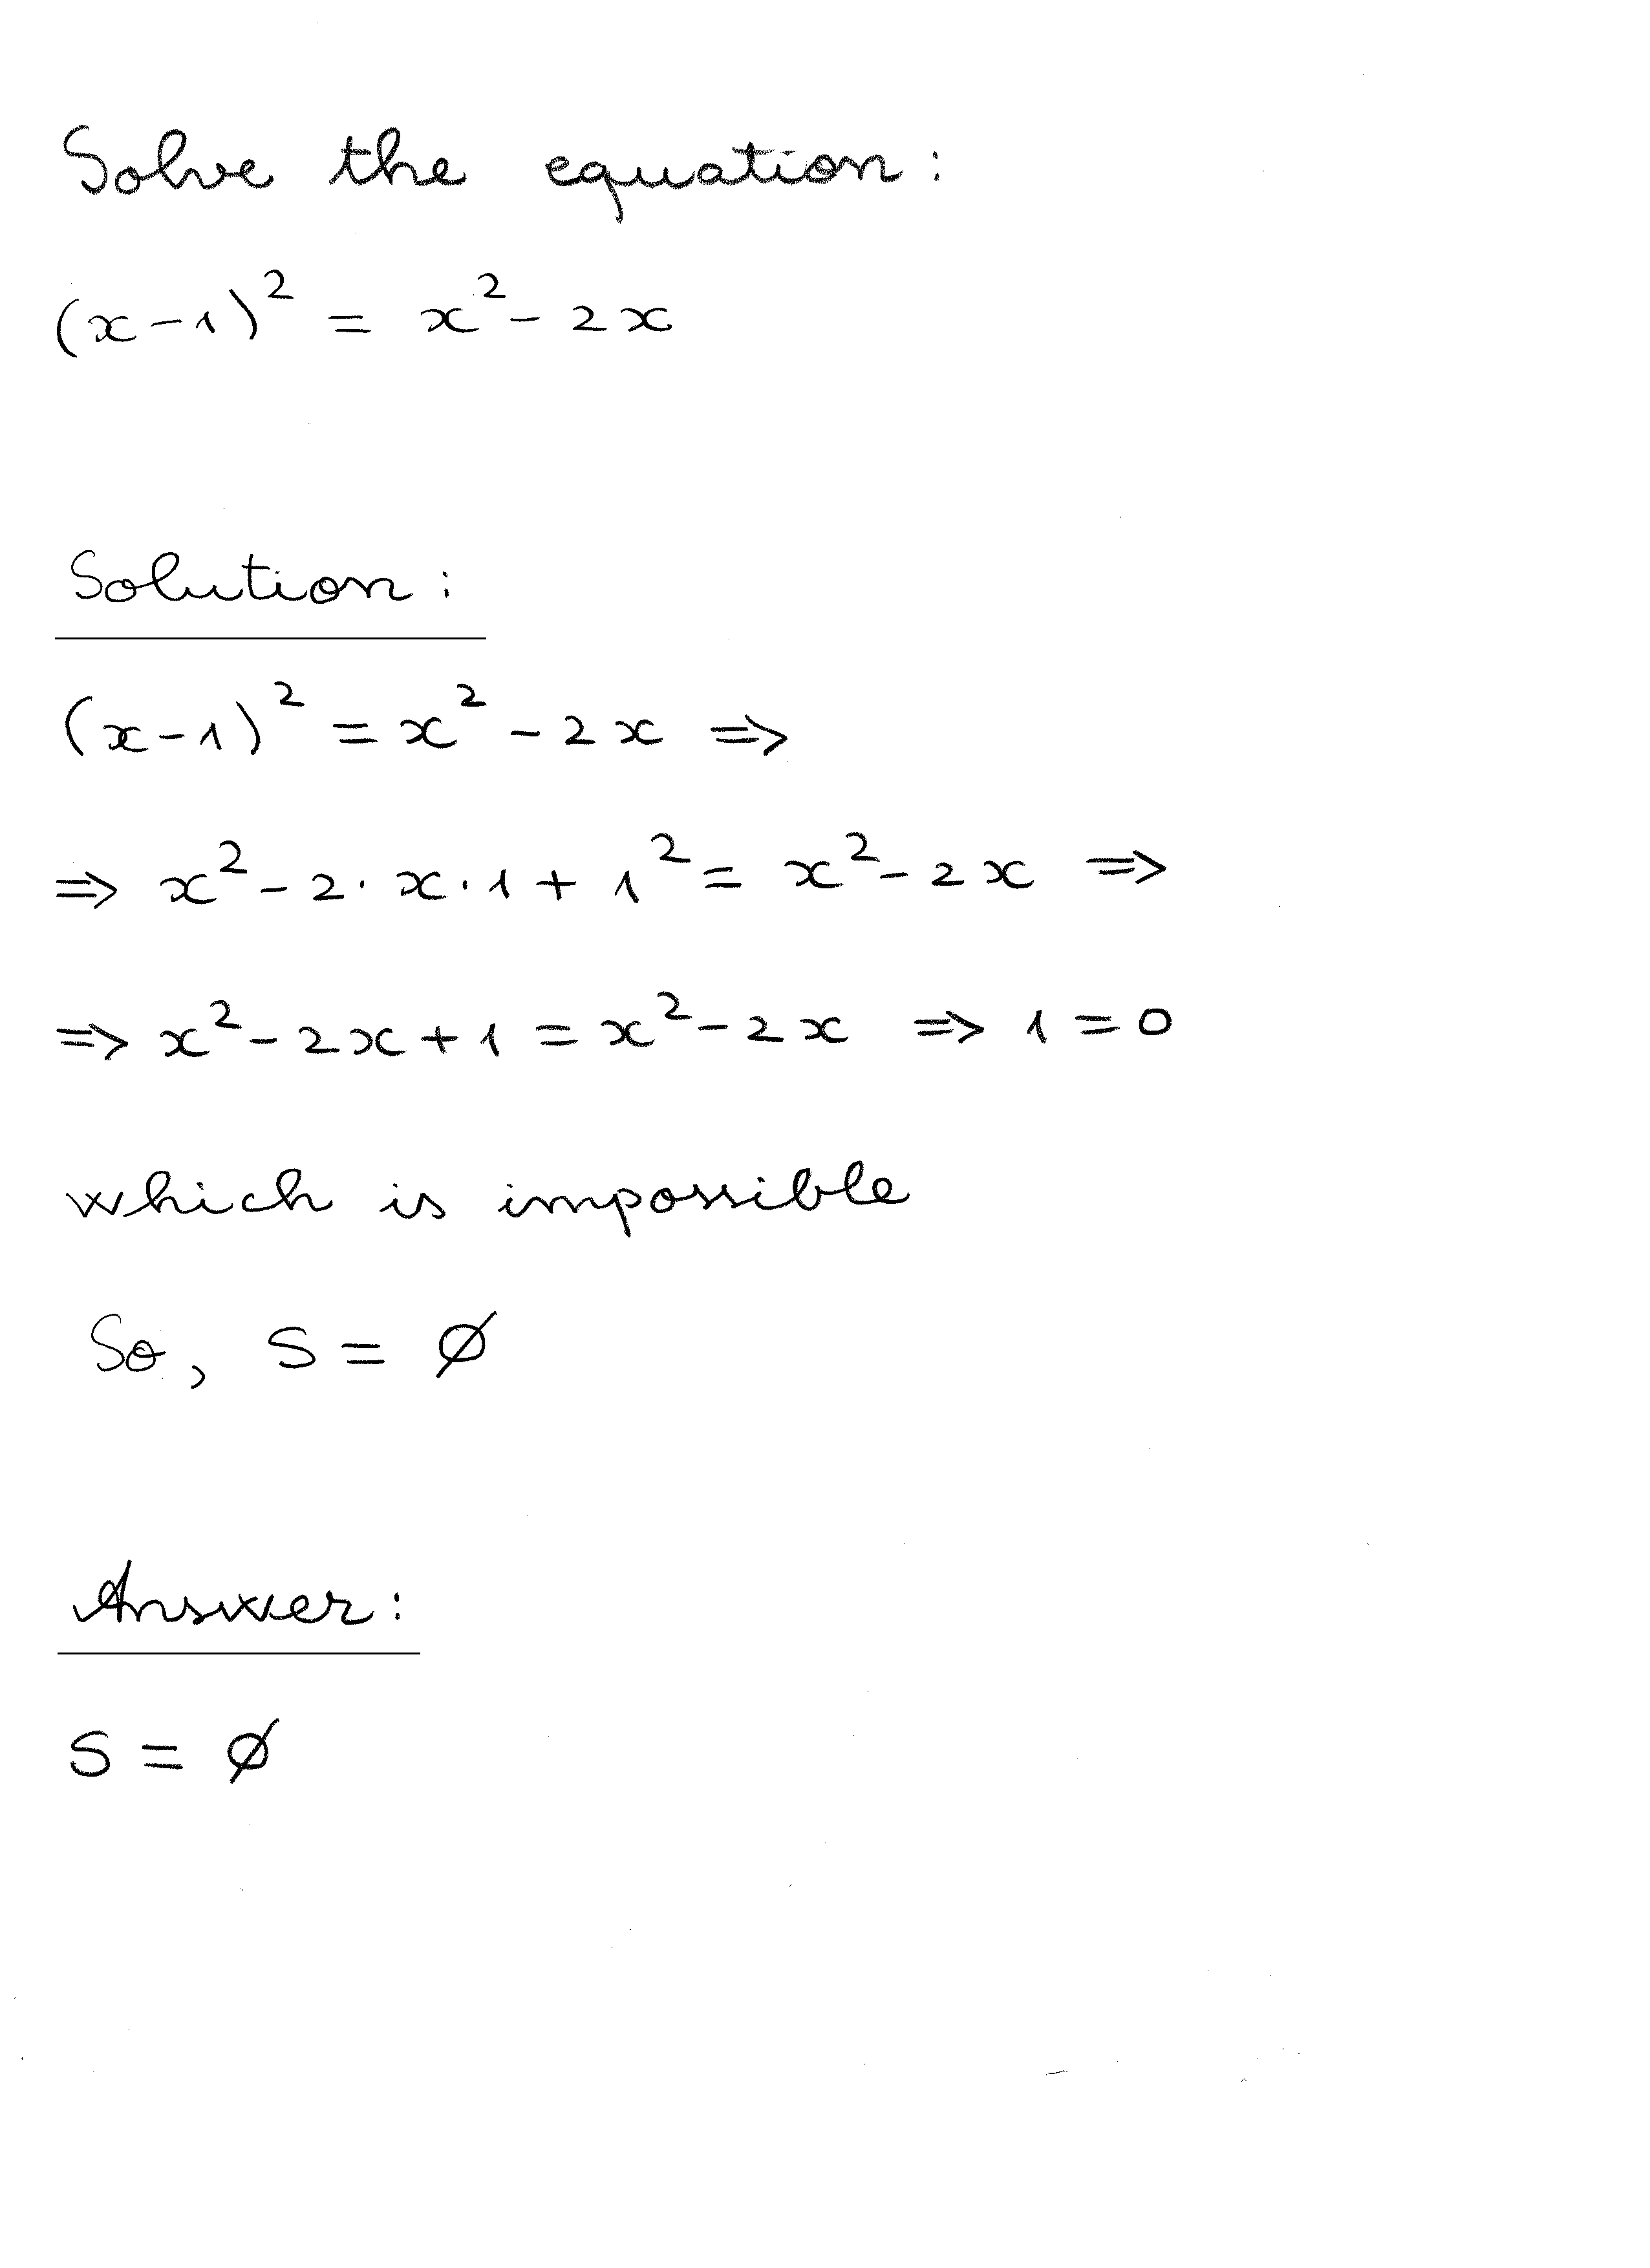 Solve the equation:
(x-1)² = x² - 2x
Solution:
(x-1)² = x² - 2x ⇒
⇒ x² - 2·x·1 + 1² = x² - 2x ⇒
⇒ x² - 2x + 1 = x² - 2x ⇒ 1 = 0
which is impossible
So, S = ∅
Answer:
S = ∅